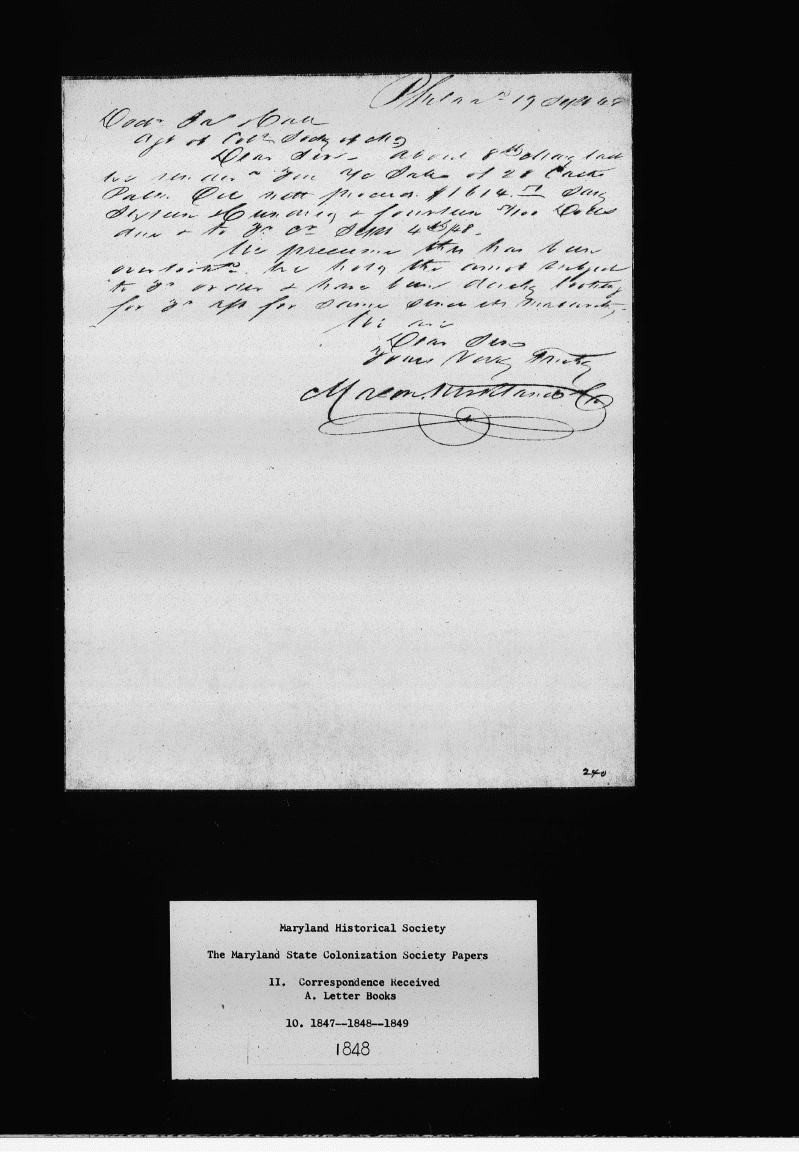 Philada 19 Sept 48
Doctr Jas Hall
Agt of Coln Socty of Md
Dear Sir - About 8th May last
we render'd you a/c Sales of 28 Casks
Palm Oil nett proceeds $1614. Say
Sixteen Hundred & fourteen /100 Dolls
due & to yr Cr Sept 4th/48.
We presume this has been
overlook'd. We hold the amot subject
to yr order & have been daily looking
for yr for same since its maturity.
We are
Dear Sir
Yours Very Truly
240
Maryland Historical Society
The Maryland State Colonization Society Papers
II. Correspondence Received
A. Letter Books
10. 1847--1848--1849
1848